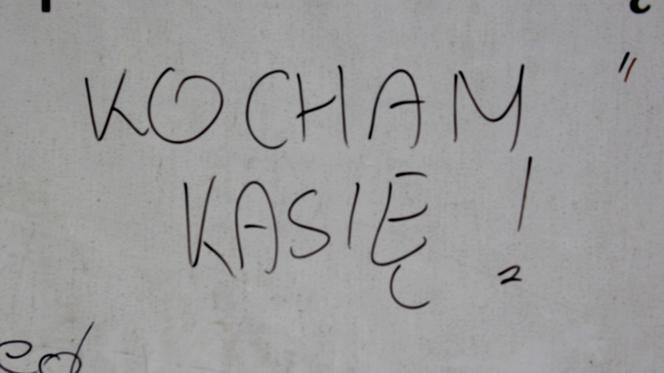 KOCHAM
KASIĘ !